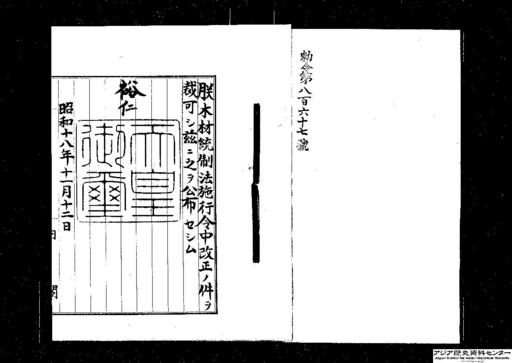 勅令第八百六十七號
朕木材統制法施行令中改正ノ件ヲ
裁可シ玆ニ之ヲ公布セシム
裕仁
天皇御璽
昭和十八年十一月十二日
内閣
アジア歴史資料センター
Japan Center for Asian Historical Records